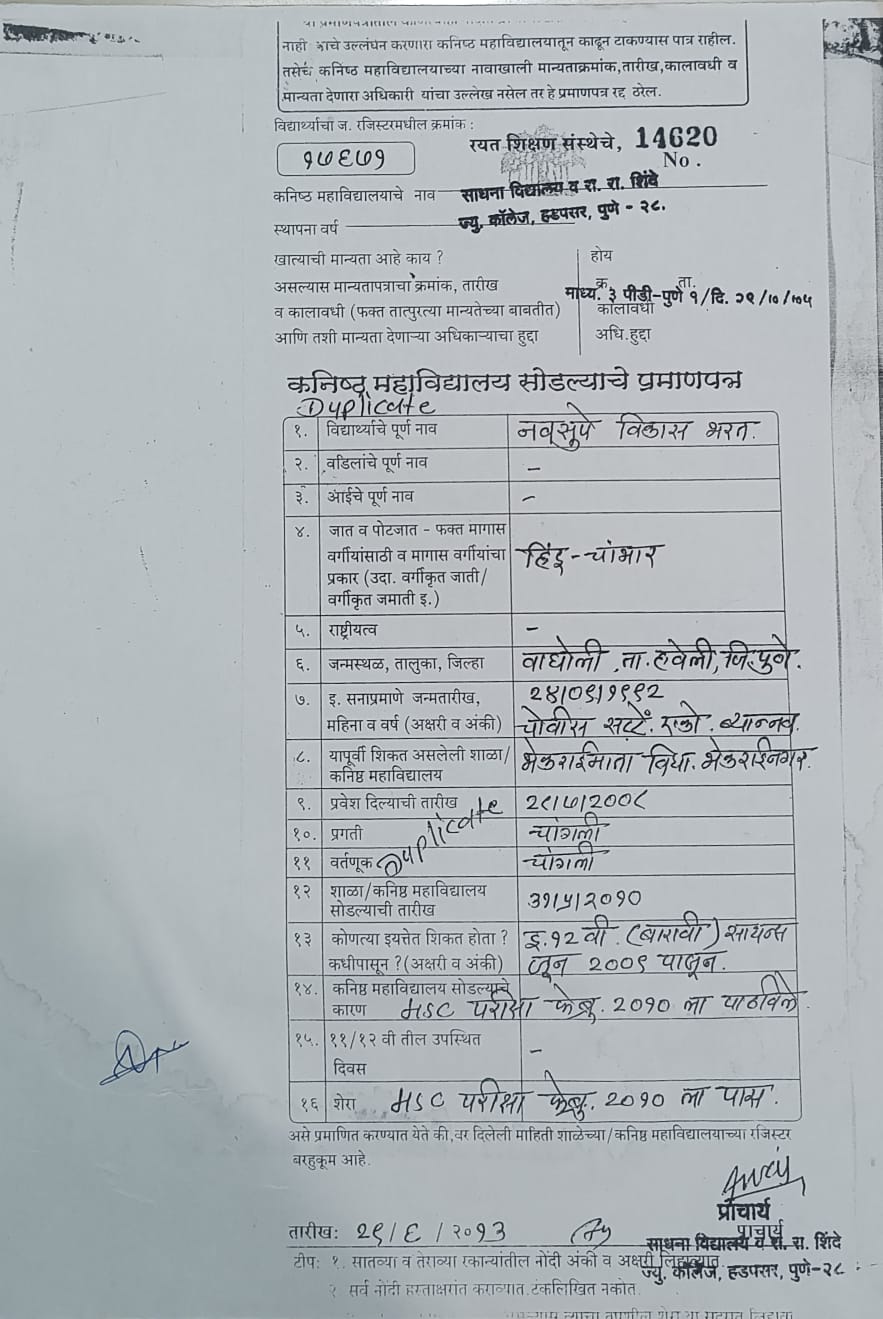 नाही याचे उल्लंघन करणारा कनिष्ठ महाविद्यालयातून काढून टाकण्यास पात्र राहील.
तसेच कनिष्ठ महाविद्यालयाच्या नावाखाली मान्यताक्रमांक,तारीख,कालावधी व
मान्यता देणारा अधिकारी यांचा उल्लेख नसेल तर हे प्रमाणपत्र रद्द ठरेल.
विद्यार्थ्याचा ज. रजिस्टरमधील क्रमांक :
रयत शिक्षण संस्थेचे, 14620
No .
१७६७१
कनिष्ठ महाविद्यालयाचे नाव साधना विद्यालय व रा. रा. शिंदे
ज्यु. कॉलेज, हडपसर, पुणे - २८.
स्थापना वर्ष
खात्याची मान्यता आहे काय ? होय
असल्यास मान्यतापत्राचा क्रमांक, तारीख क्र. ता.
माध्य. ३ पीडी-पुणे १/दि. २९/१०/७५
व कालावधी (फक्त तात्पुरत्या मान्यतेच्या बाबतीत) कालावधी
आणि तशी मान्यता देणाऱ्या अधिकाऱ्याचा हुद्दा अधि.हुद्दा
कनिष्ठ महाविद्यालय सोडल्याचे प्रमाणपत्र
Duplicate
१. विद्यार्थ्याचे पूर्ण नाव नवसुपे विकास भरत.
२. वडिलांचे पूर्ण नाव –
३. आईचे पूर्ण नाव –
४. जात व पोटजात - फक्त मागास
वर्गीयांसाठी व मागास वर्गीयांचा हिंदु-चांभार
प्रकार (उदा. वर्गीकृत जाती/
वर्गीकृत जमाती इ.)
५. राष्ट्रीयत्व –
६. जन्मस्थळ, तालुका, जिल्हा वाघोली, ता. हवेली, जि. पुणे.
७. इ. सनाप्रमाणे जन्मतारीख, २४/०९/१९९२
महिना व वर्ष (अक्षरी व अंकी) चोवीस सप्टें. एको. ब्यान्नव.
८. यापूर्वी शिकत असलेली शाळा/ भेकराईमाता विद्या. भेकराईनगर.
कनिष्ठ महाविद्यालय
९. प्रवेश दिल्याची तारीख २८/७/२००८
१०. प्रगती चांगली
Duplicate
११ वर्तणूक चांगली
१२ शाळा/कनिष्ठ महाविद्यालय
सोडल्याची तारीख ३१/५/२०१०
१३ कोणत्या इयत्तेत शिकत होता ? इ.१२ वी. (बारावी) सायन्स
कधीपासून ?(अक्षरी व अंकी) जून २००९ पासून.
१४. कनिष्ठ महाविद्यालय सोडल्याचे
कारण HSC परीक्षा फेब्रु. २०१० ला पाठविले
१५. ११/१२ वी तील उपस्थित –
दिवस
१६ शेरा HSC परीक्षा फेब्रु. २०१० ला पास.
असे प्रमाणित करण्यात येते की,वर दिलेली माहिती शाळेच्या/कनिष्ठ महाविद्यालयाच्या रजिस्टर
बरहुकूम आहे.
प्राचार्य
प्राचार्य
तारीख: २९/६/२०१३ साधना विद्यालय व रा. रा. शिंदे
ज्यु. कॉलेज, हडपसर, पुणे-२८
टीप: १. सातव्या व तेराव्या रकान्यांतील नोंदी अंकी व अक्षरी लिहाव्यात.
२ सर्व नोंदी हस्ताक्षरांत कराव्यात.टंकलिखित नकोत.